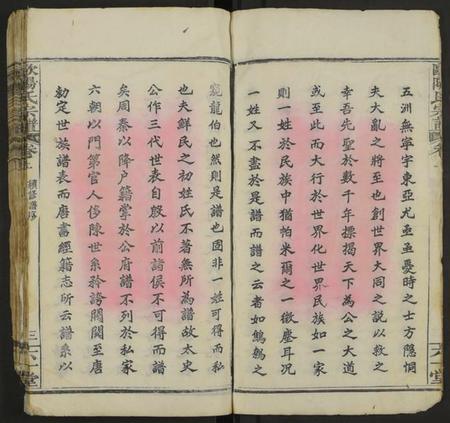 歐陽氏宗譜
五洲無寧宇東亞尤亟亟憂時之士方隱惘
夫大亂之將至也創世界大同之説以救之
幸吾先聖於數千年標揭天下為公之大道
或至此而大行於世界化世界民族如一家
則一姓於民族中猶帕米爾之一微塵耳況
一姓又不盡於是譜而譜之云者如鷦鷯之
六一堂
窺龍伯也然則是譜也固非一姓可得而私
也夫鮮民之初姓氏不著無所為譜故太史
公作三代世表自殷以前諸侯不可得而譜
矣周秦以降户籍掌於公府譜不列於私家
六朝以門第官人侈陳世系矜誇閥閲至唐
勅定世族譜表而唐書經籍志所云譜系以
歐陽氏宗譜
續修譜序
三
六一堂